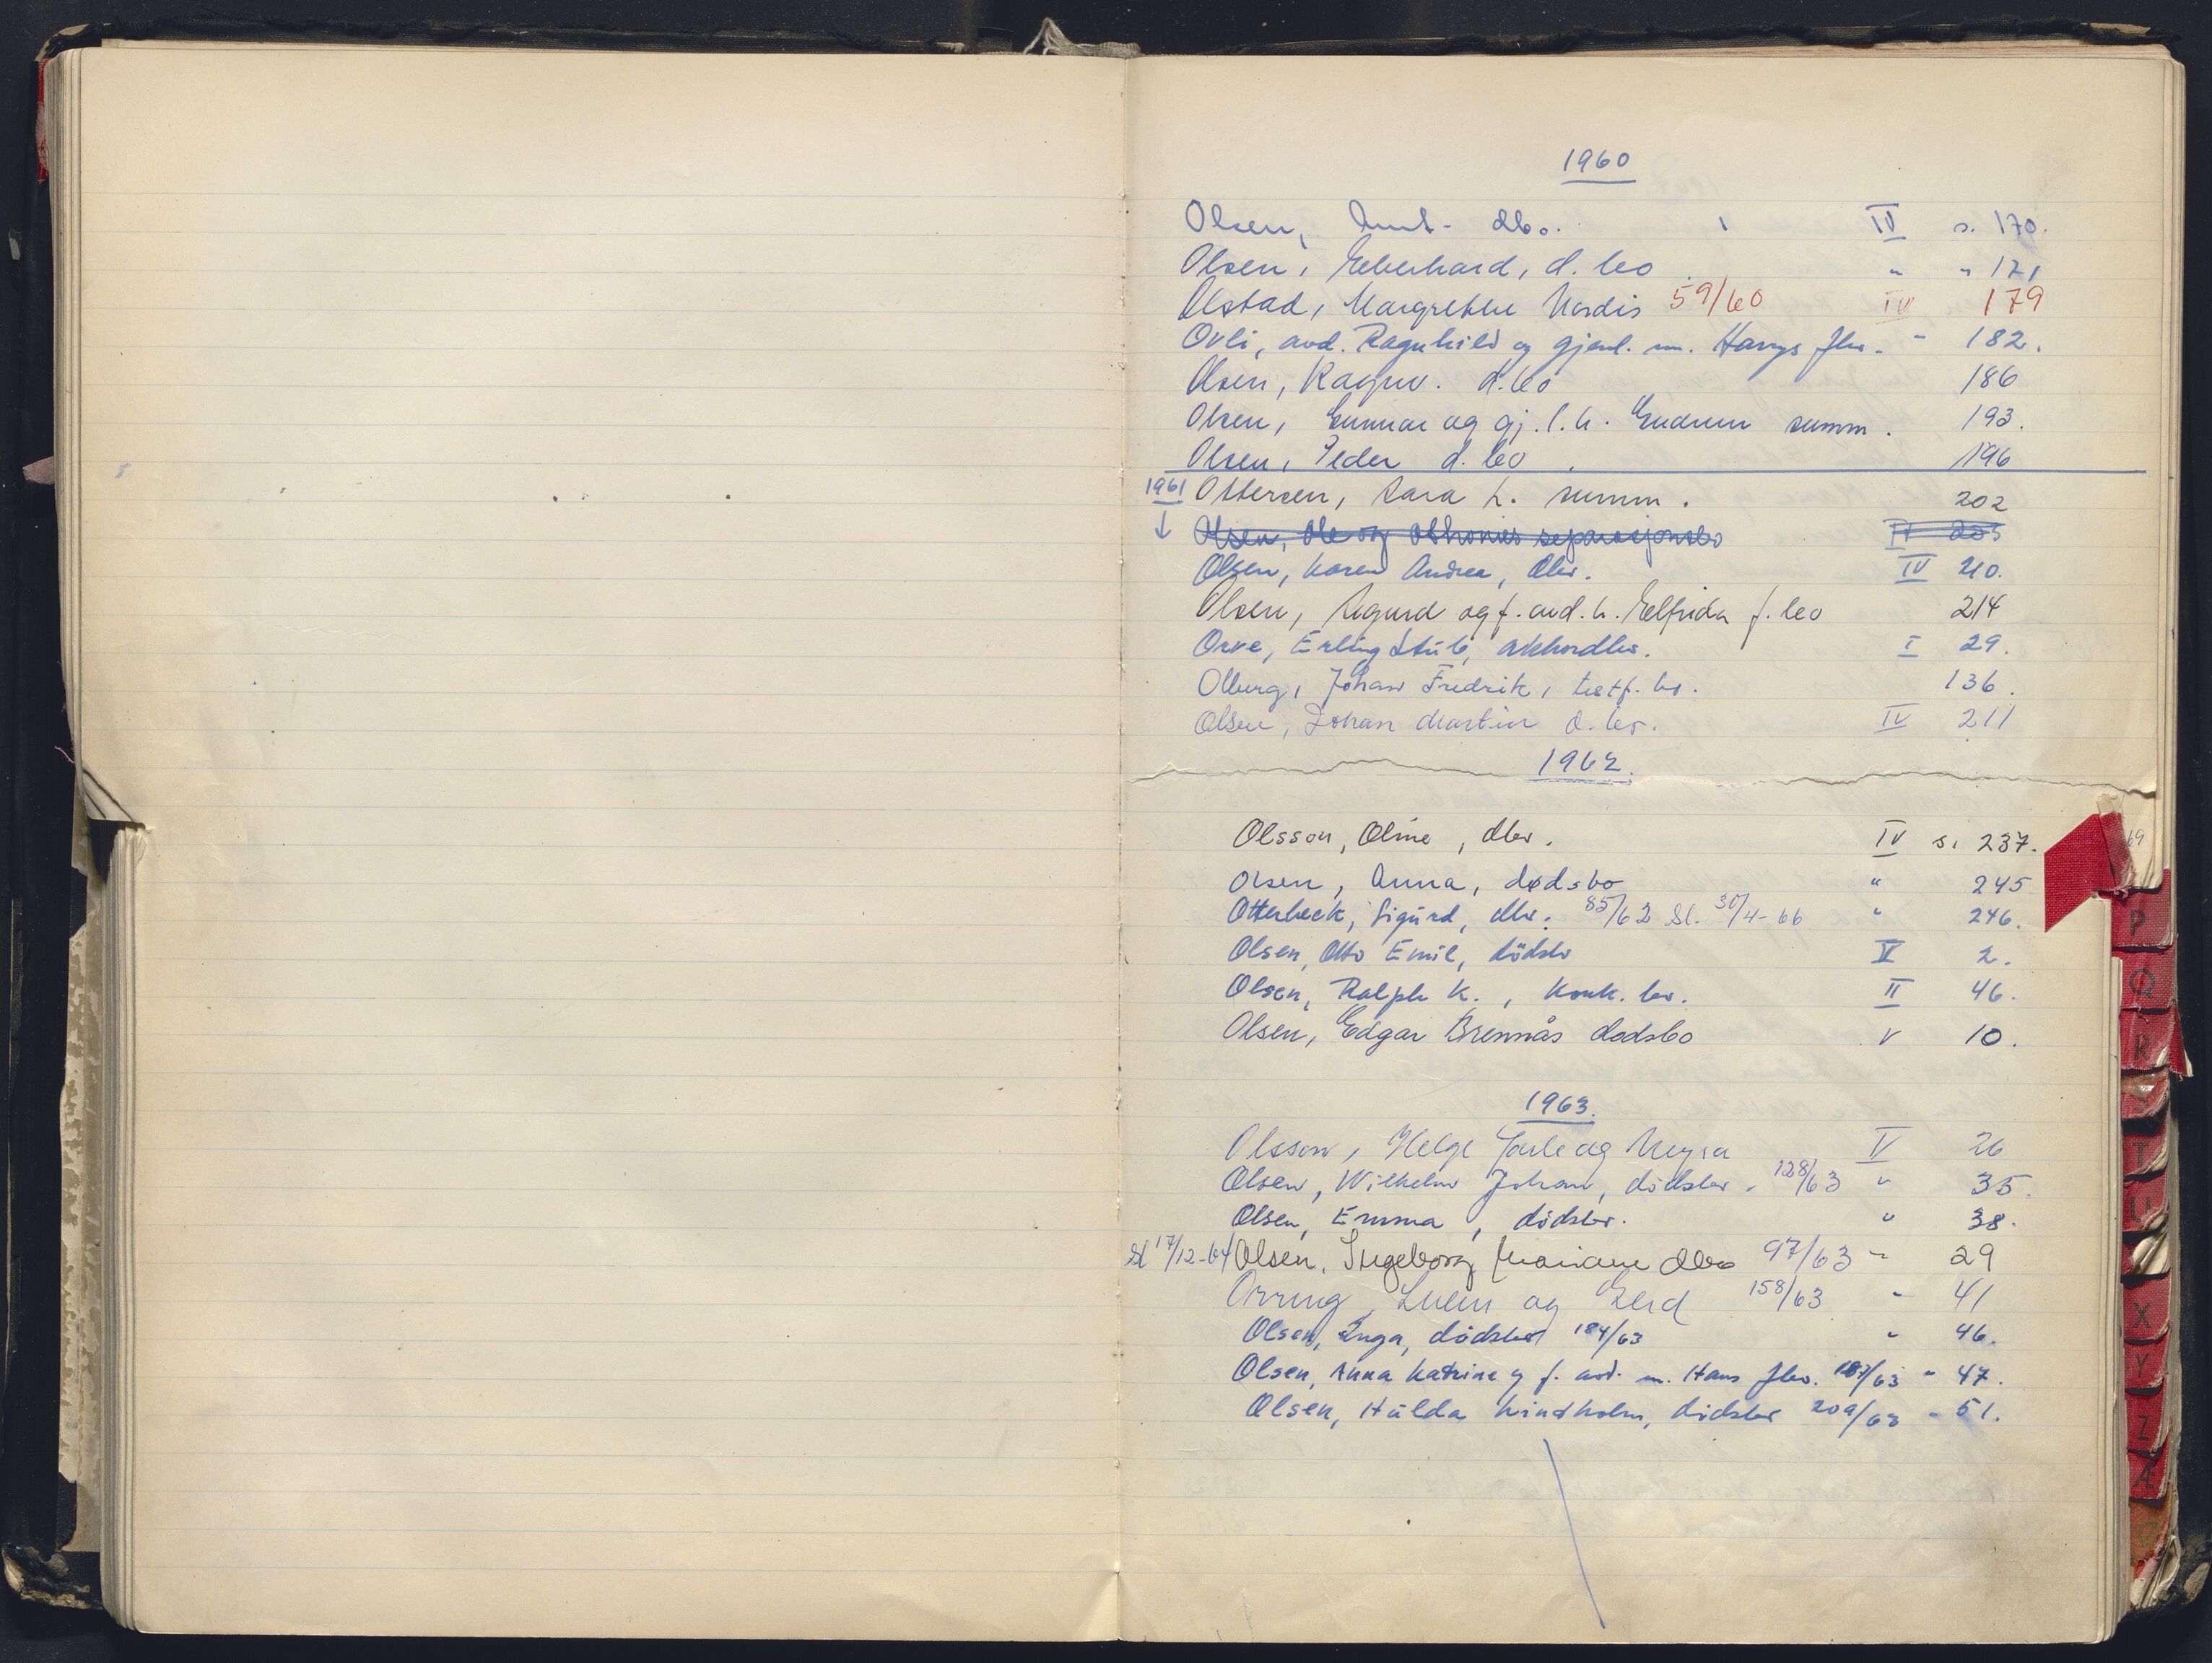 1960
Olsen, dbo. IV s. 170.
Olsen, Eberhard, d. bo " " 171
Olstad, Margrethe Nordis 59/60 IV 179
Ovli, avd. Ragnhild og gjenl. m. Harrys fbo. " 182.
Olsen, Ragnv. d. bo 186
Olsen, Gunnar og gj. l. h. Gudrun summ. 193.
Olsen, Peder d. bo. 196
1961 Ottersen, Sara L. summ. 202
Olsen, Ole og Othonie separasjonsbo IV 205
Olsen, Karen Andrea, dbo. IV 210.
Olsen, Sigurd og f. avd. h. Elfrida f. bo 214
Orve, Erling Stub, akkordbo. I 29.
Olberg, Johan Fredrik, test. f. bo. 136.
Olsen, Johan Martin d. bo. IV 211
1962.
Olsson, Oline, dbo. IV s. 237.
Olsen, Anna, dødsbo " 245
Otterbeck, Sigurd, dbo. 85/62 Sl. 30/4-66 " 246.
Olsen, Otto Emil, dödsbo V 2.
Olsen, Ralph K., konk. bo. II 46.
Olsen, Edgar Brennås dodsbo V 10.
1963.
Olsson, Helge og V 26
Olsen, Wilhelm Johan, dödsbo. 128/63 " 35.
Olsen, Emma, dödsbo. " 38.
Sl 17/12-64 Olsen, Ingeborg Mariane dbo 97/63 " 29
og 158/63 " 41
Olsen, Inga, dödsbo 184/63 " 46.
Olsen, Anna Katrine og f. avd. m. Hans fbo. 187/63 " 47.
Olsen, Hulda Lindholm, dödsbo 209/63 " 51.
69
P
Q
R
T
U
X
Y
Z
Æ